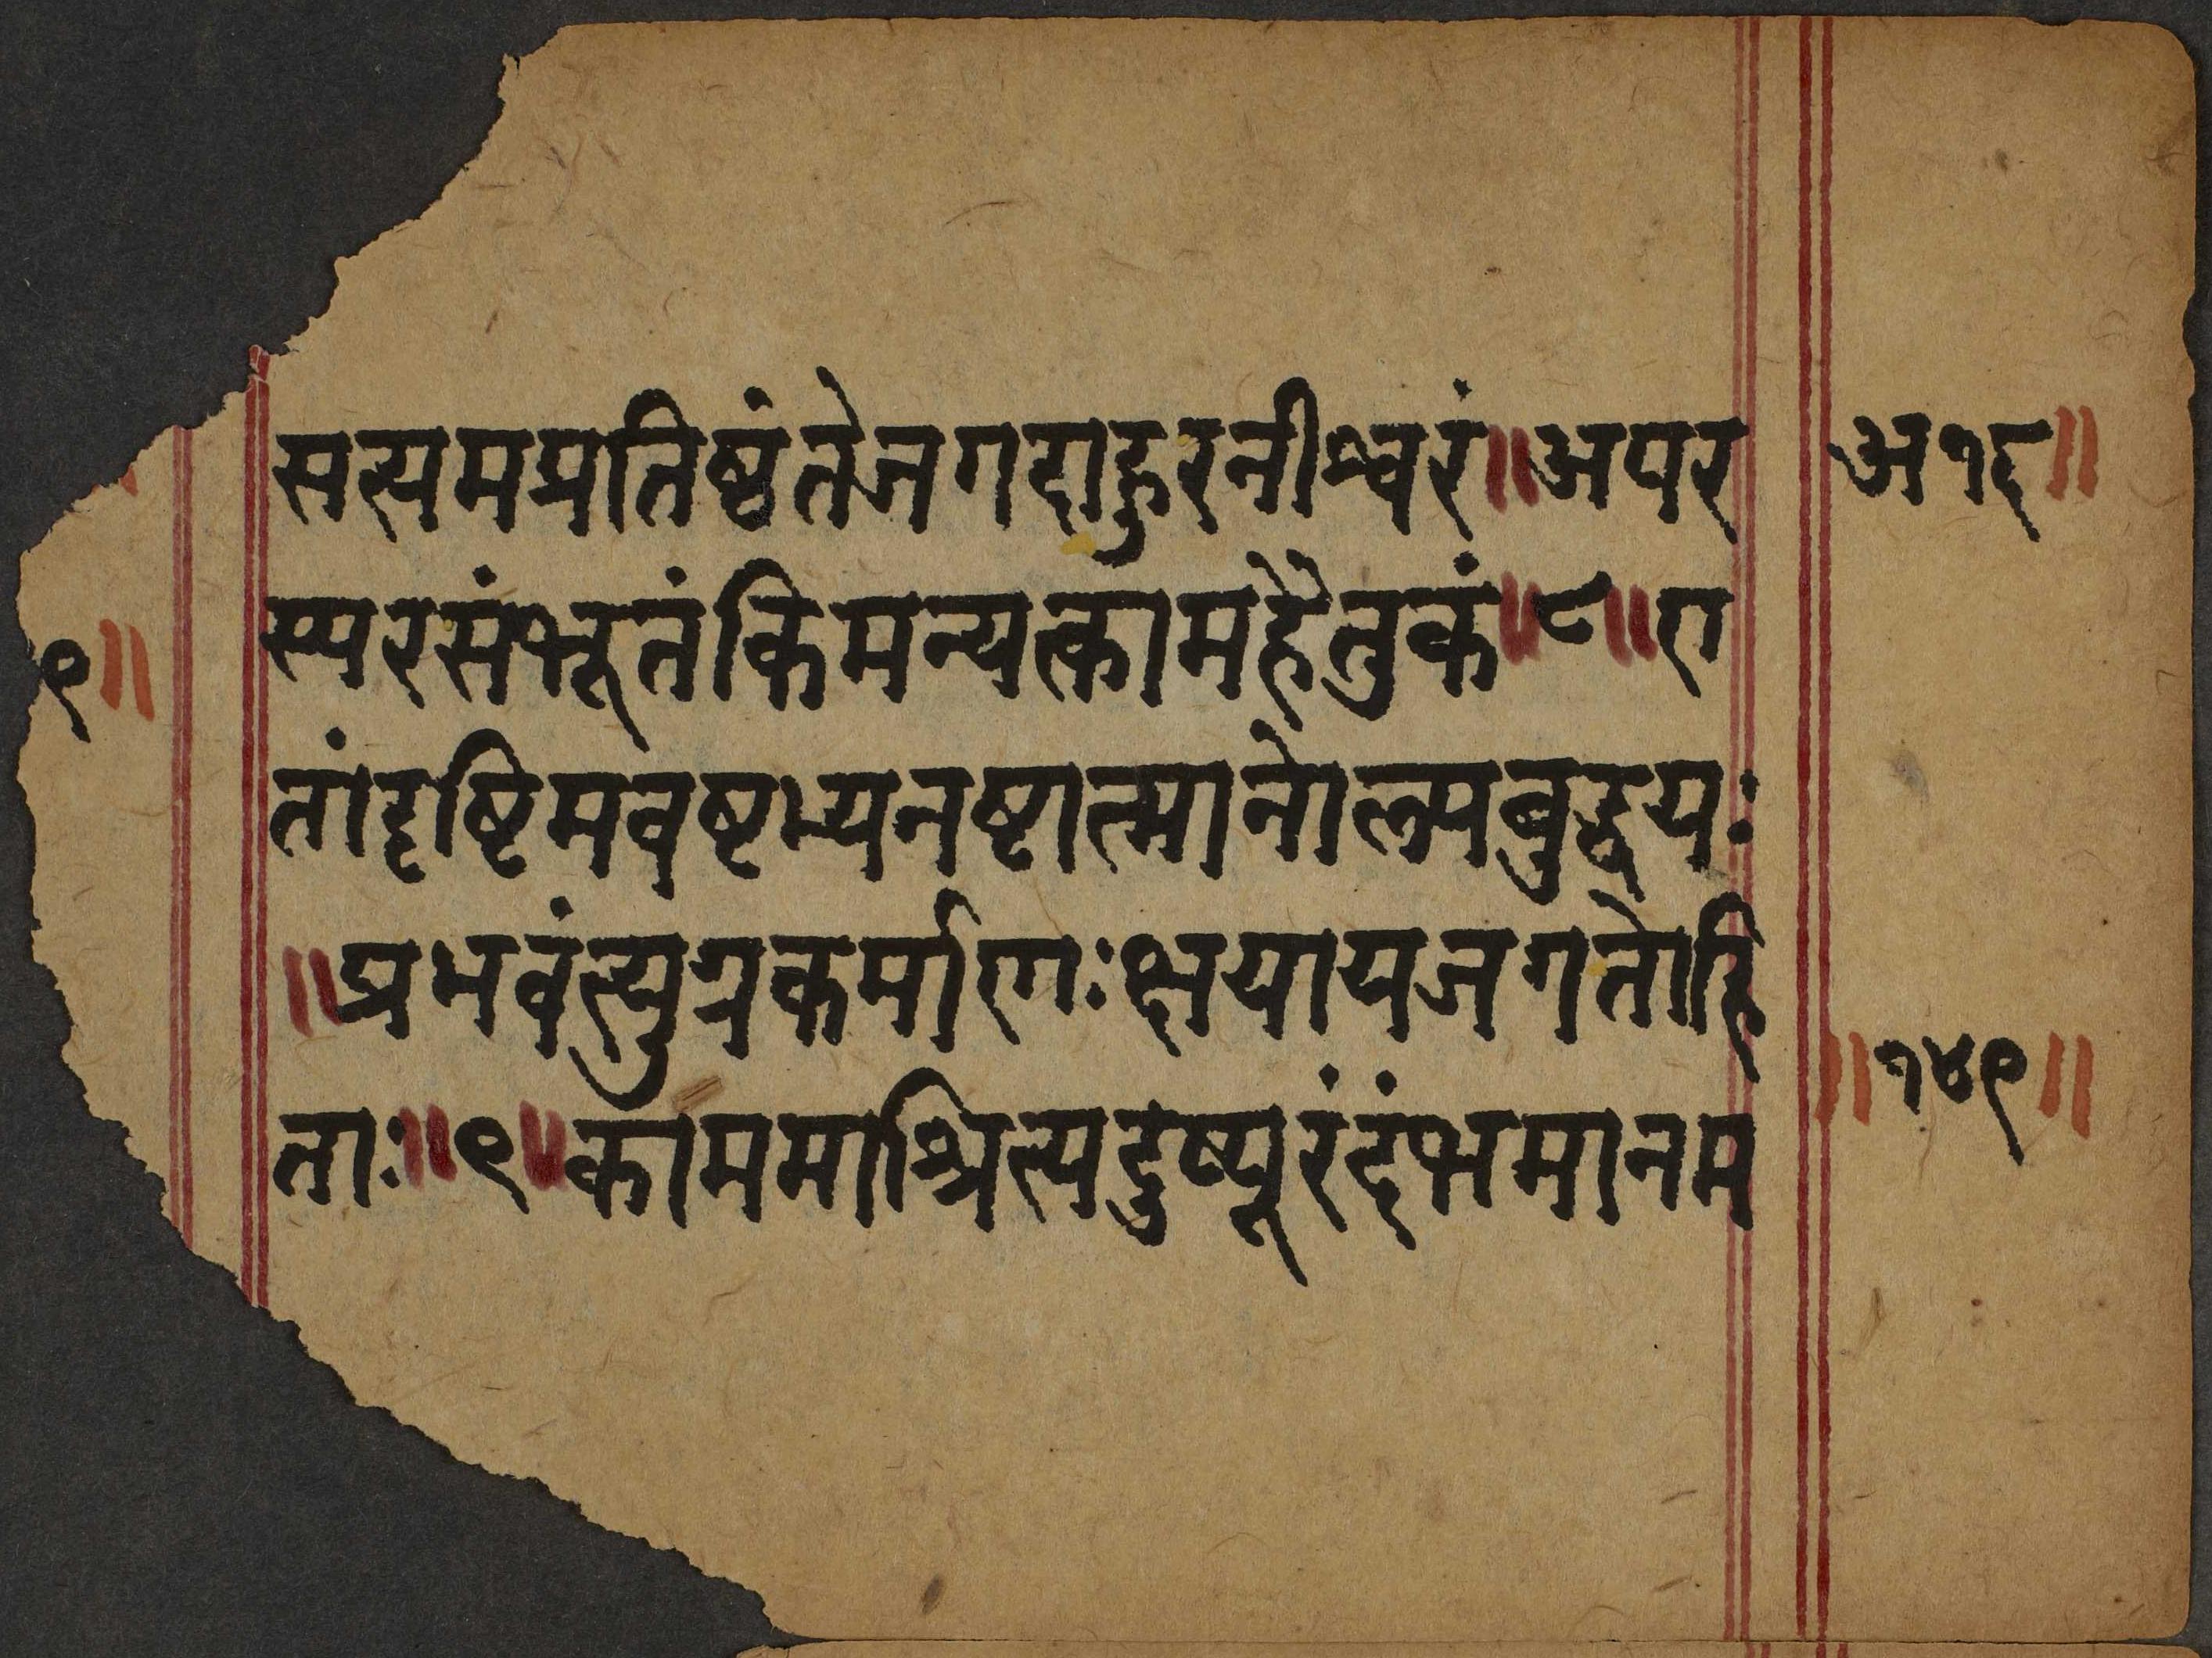 सत्यमप्रतिष्ठंतेजगदाहुरनीश्वरं॥अपर
स्परसंभूतंकिमन्यत्कामहैतुकं॥८॥ए
तांदृष्टिमवष्टभ्यनष्टात्मानोल्पबुद्धयः
॥प्रभवंत्युग्रकर्माणःक्षयायजगतोहि
ताः॥९॥काममाश्रित्यदुष्पूरंदंभमानम
अ१६॥
॥१४९॥
९॥